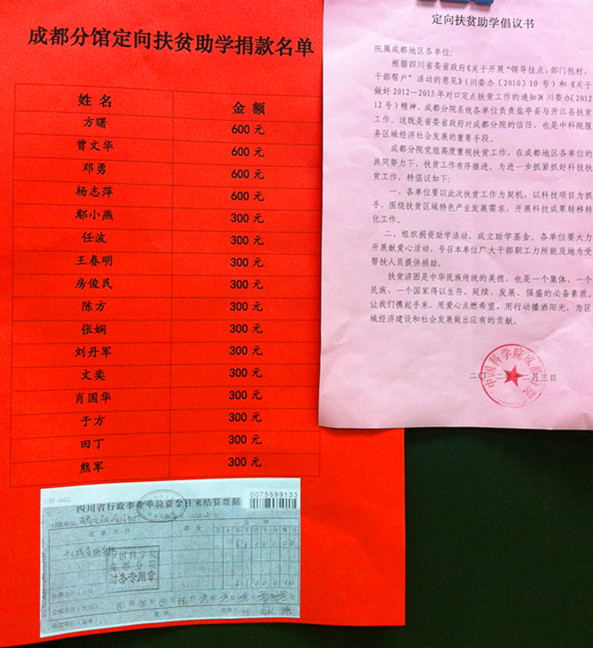 成都分馆定向扶贫助学捐款名单
姓名 金额
方曙 600元
曾文华 600元
邓勇 600元
杨志萍 600元
鄢小燕 300元
任波 300元
王春明 300元
房俊民 300元
陈方 300元
张娴 300元
刘丹军 300元
文奕 300元
肖国华 300元
于方 300元
田丁 300元
熊军 300元
0075599133
四川省行政事业单位资金往来结算票据
定向扶贫助学倡议书
院属成都地区各单位:
根据四川省委省政府《关于开展“领导挂点、部门包村、
干部帮户”活动的意见》(川委办〔2010〕10号)和《关于
做好2012-2015年对口定点扶贫工作的通知》(川委办〔2012〕
12号)精神,成都分院系统各单位负责盐亭县与开江县扶贫
工作。这既是省委省政府对成都分院的信任,也是中科院服
务区域经济社会发展的重要手段。
成都分院党组高度重视扶贫工作,在成都地区各单位的
共同努力下,扶贫工作有序推进。为进一步抓紧抓好科技扶
贫工作,特倡议如下:
一、各单位要以此次扶贫工作为契机,以科技项目为抓
手,围绕扶贫区域特色产业发展需求,开展科技成果转移转
化工作。
二、组织捐资助学活动,成立助学基金。各单位要大力
开展献爱心活动,号召本单位广大干部职工力所能及地为受
帮扶人员提供捐助。
扶贫济困是中华民族传统的美德,也是一个集体、一个
民族、一个国家得以生存、延续、发展、强盛的必备素质。
让我们携起手来,用爱心点燃希望,用行动播洒阳光,为区
域经济建设和社会发展做出应有的贡献。
中国科学院成都分院